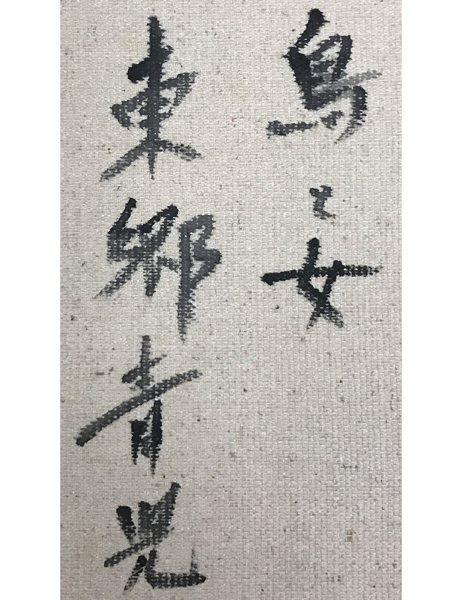 鳥と女
東郷青児